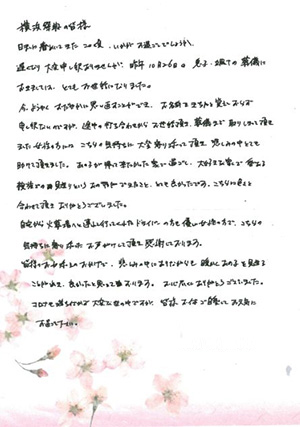 横浜葬祭の皆様
日毎に春めいてきたこの頃、いかがお過ごしでしょうか。
遅くなり大変申し訳ありませんが、昨年10月26日の 葬儀に
おきましては、とてもお世話になりました。
今ようやくおだやかに思い返すことができ、お名前もきちんと覚えておらず
申し訳ないのですが、途中の打ち合わせからお世話頂き、葬儀まで取りしきって頂き
ました女性の方には、こちらの気持ちに大変寄りそって頂き、悲しみの中とても
助けて頂きました。あの子が帰って来たかった家で過ごし、大好きな家で
家族での見送りというあの形ができたこと、とても良かったです。こちらに色々と
合わせて頂きありがとうございました。
自宅から火葬場へと運んで行ってくれたドライバーの方も優しい女性の方で、こちらの
気持ちに寄りそった お声がけをして頂き、感謝しております。
皆様のお心添えのおかげで、悲しみの中にありながらも 暖かくあの子を見送る
ことができて、良かったと思っております。お心広くありがとうございました。
コロナも落ち着かず大変な世の中ですが、皆様、お体ご自愛にてお元気に
お過ごし下さい。